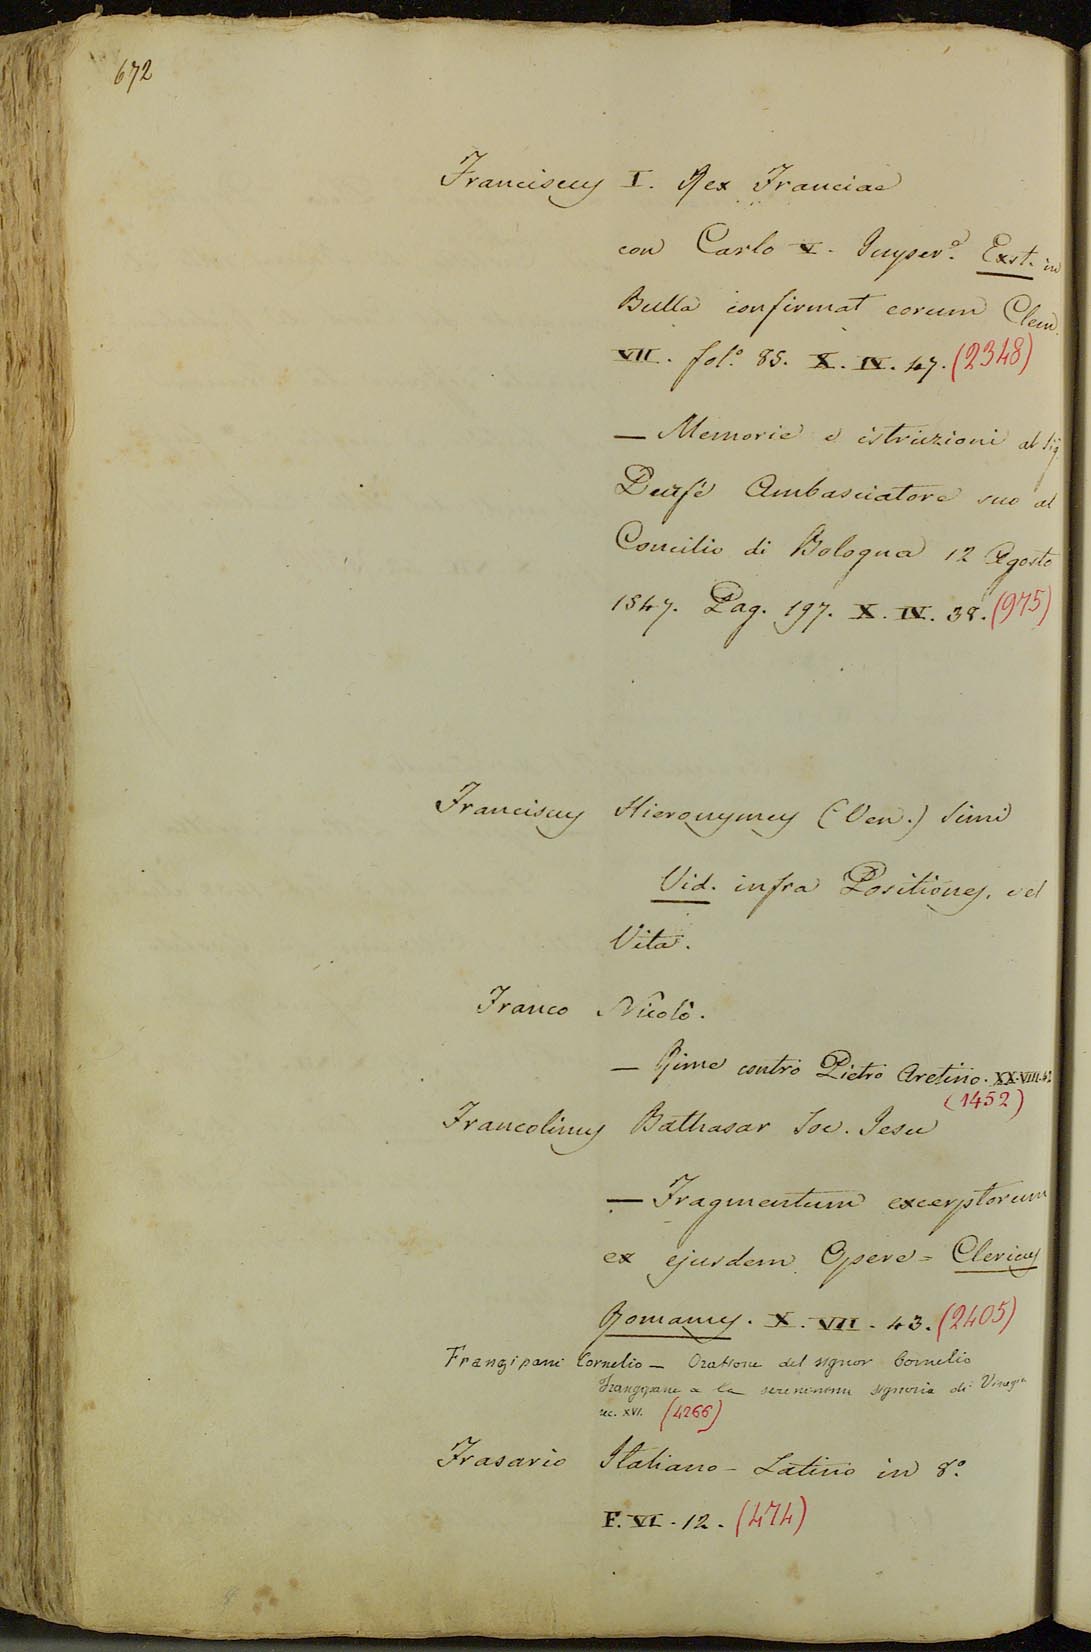 672
Franciscus I. Rex Franciae
con Carlo V. Imper.º Exst. in
Bulla confirmat eorum Clem.
VII. fol.º 85. X. IV. 47. (2348)
— Memorie e istruzioni al Sig.
Ambasciatore suo al
Concilio di Bologna 12 Agosto
1547. Pag. 197. X. IV. 38. (975)
Franciscus Hieronymus (Ven.) Simi
Vid. infra Positiones, vel
Vita.
Franco Nicolò.
— Rime contro Pietro Aretino. XX. VIII. 42
(1452)
Francolinus Balthasar Soc. Jesu
— Fragmentum excerptorum
ex ejusdem Opere = Clericus
Romanus. X. VII. 43. (2405)
Frangipani Cornelio — Oratione del signor Cornelio
Frangipane a la serenissima signoria di Vinegia
sec. XVI. (4266)
Frasario Italiano - Latino in 8.º
F. VI. 12. (474)